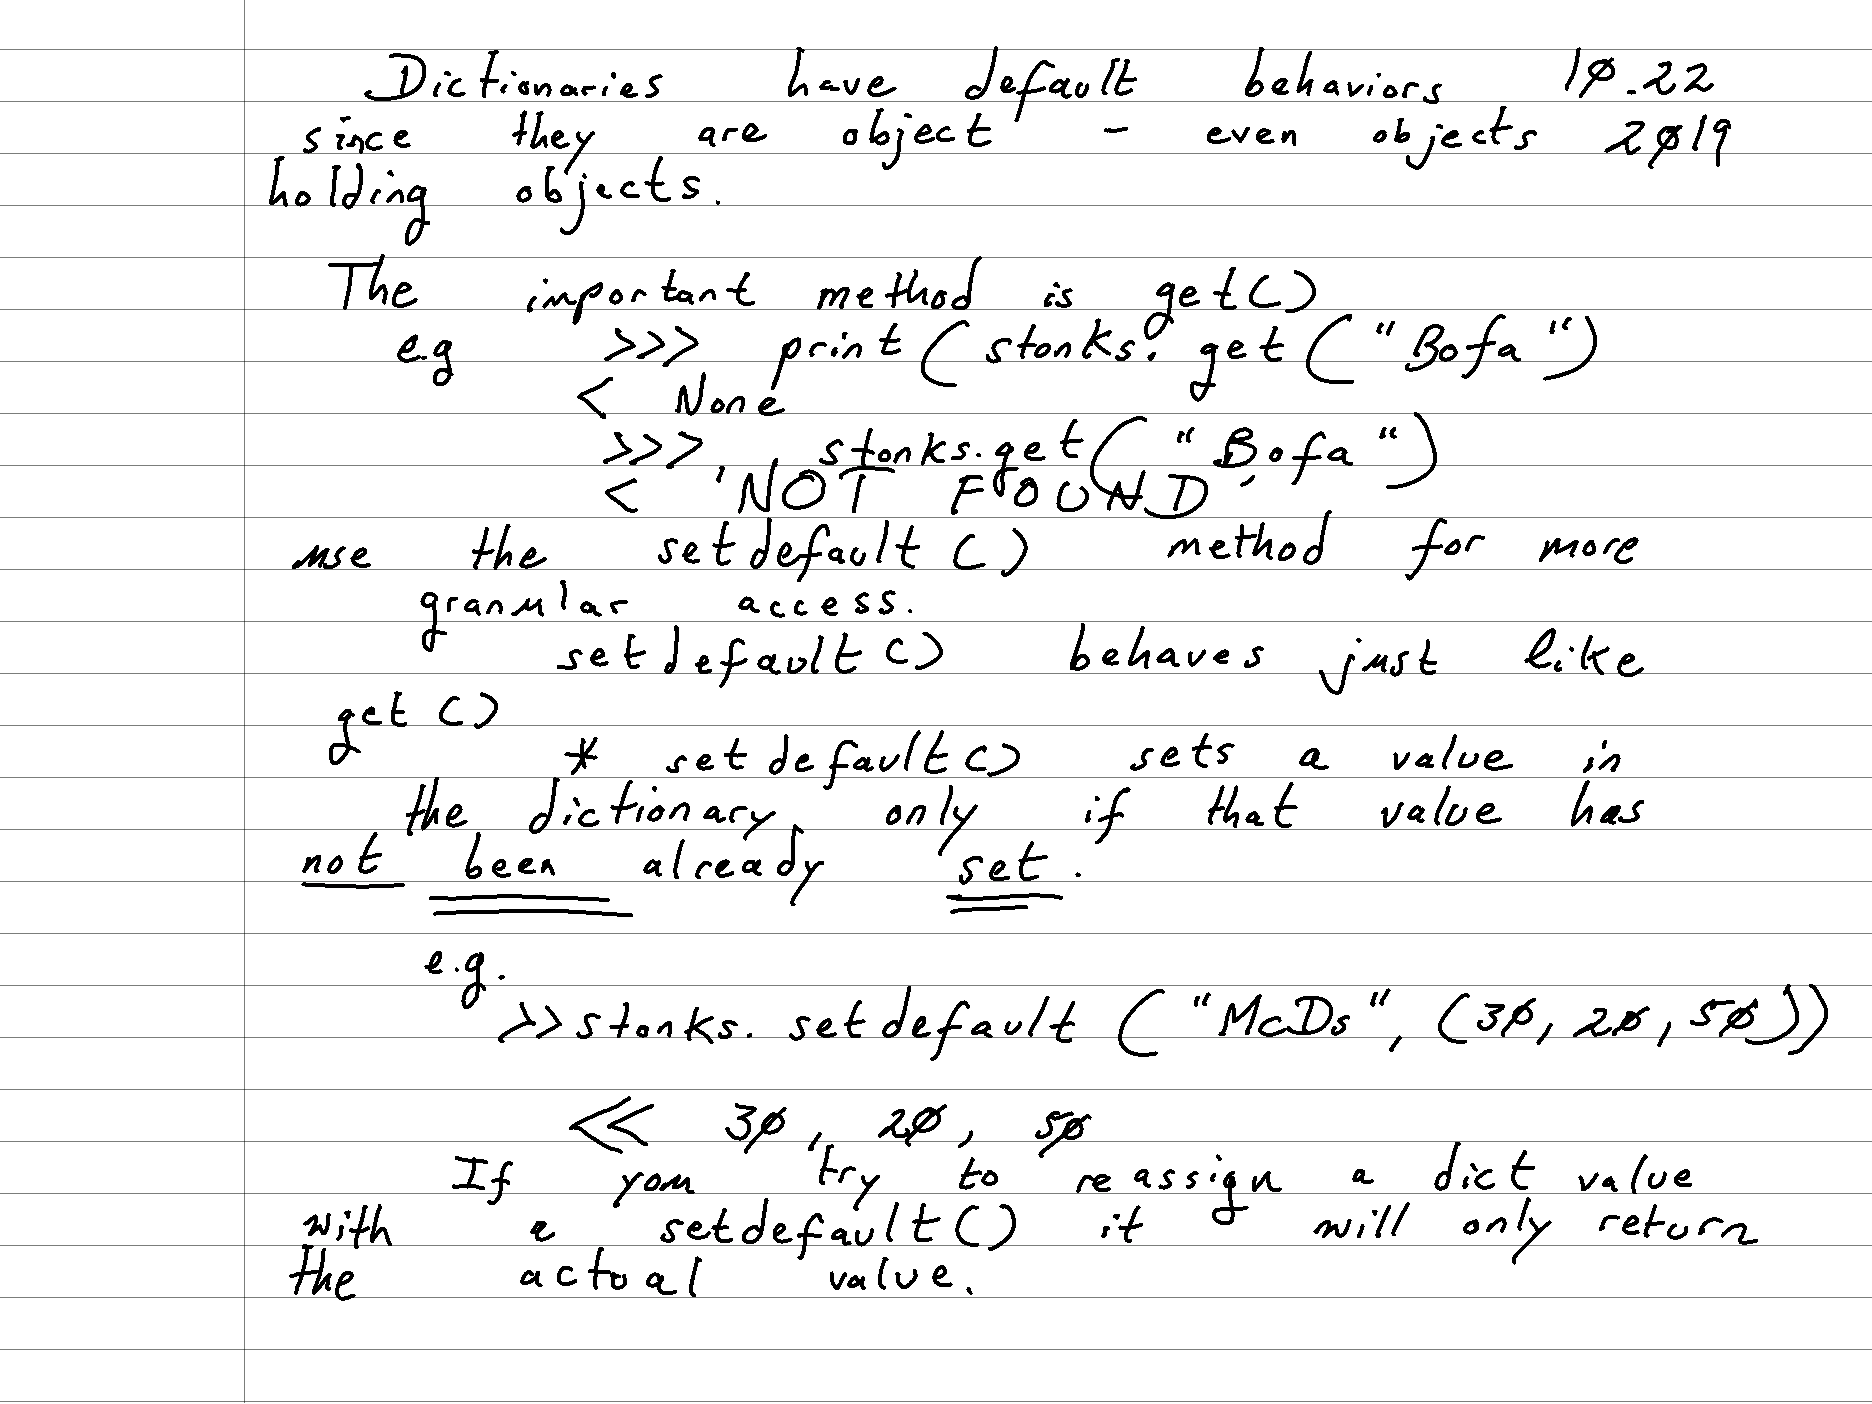 Dictionaries have default behaviors 10.22
since they are object - even objects 2019
holding objects.
The important method is get()
e.g >>> print(stonks.get("Bofa")
< None
>>> stonks.get("Bofa")
< 'NOT FOUND'
use the setdefault() method for more
granular access.
setdefault() behaves just like
get()
* setdefault() sets a value in
the dictionary, only if that value has
not been already set.
e.g.
>>stonks.setdefault("McDs", (30, 20, 50))
<< 30, 20, 50
If you try to reassign a dict value
with a setdefault() it will only return
the actual value.